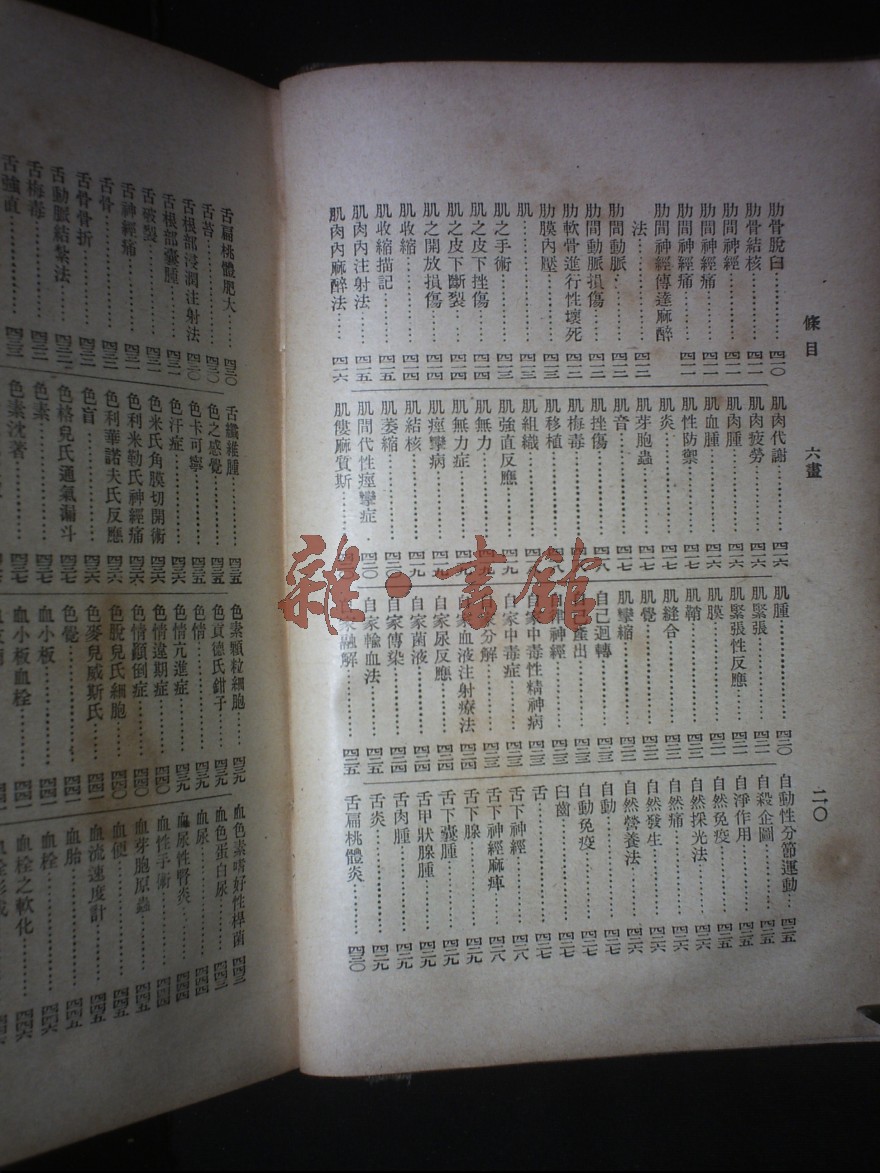 條目 六畫 二〇
肋骨脫臼…………四一〇
肋骨結核…………四一一
肋間神經…………四一一
肋間神經痛…………四一一
肋間神經痛…………四一一
肋間神經傳達麻醉
法…………四一二
肋間動脈…………四一二
肋間動脈損傷…………四一二
肋軟骨進行性壞死 四一二
肋膜內壓…………四一三
肌…………四一三
肌之手術…………四一三
肌之皮下挫傷…………四一四
肌之皮下斷裂…………四一四
肌之開放損傷…………四一四
肌收縮…………四一四
肌收縮描記…………四一五
肌肉內注射法…………四一五
肌肉內麻醉法…………四一六
肌肉代謝…………四一六
肌肉疲勞…………四一六
肌肉腫…………四一六
肌血腫…………四一六
肌性防禦…………四一七
肌炎…………四一七
肌芽胞蟲…………四一七
肌音…………四一七
肌挫傷…………四一八
肌梅毒
肌移植
肌組織
肌強直反應…………四一九
肌無力
肌無力症
肌痙攣病…………四一九
肌結核…………四一九
肌萎縮
肌間代性痙攣症
肌僂麻質斯
肌腫…………四二〇
肌緊張…………四二一
肌緊張性反應…………四二一
肌膜…………四二一
肌鞘…………四二二
肌縫合…………四二二
肌覺…………四二二
肌攣縮…………四二二
自己迴轉…………四二三
自己產出…………四二三
自律神經…………四二三
自家中毒性精神病 四二三
自家中毒症…………四二三
自家分解…………四二三
自家血液注射療法 四二四
自家尿反應…………四二四
自家菌液…………四二四
自家傳染…………四二四
自家輸血法…………四二五
自家融解…………四二五
自動性分節運動…四二五
自殺企圖…………四二五
自淨作用…………四二五
自然免疫…………四二六
自然採光法…………四二六
自然痛…………四二六
自然發生…………四二六
自然營養法…………四二六
自動…………四二七
自動免疫…………四二七
臼齒…………四二七
舌…………四二七
舌下神經…………四二八
舌下神經麻痺…………四二八
舌下腺…………四二九
舌下囊腫…………四二九
舌甲狀腺腫…………四二九
舌肉腫…………四二九
舌炎…………四二九
舌扁桃體炎…………四三〇
舌扁桃體肥大…四三〇
舌苔…………四三〇
舌根部浸潤注射法 四三〇
舌根部囊腫…………四三一
舌破裂…………四三一
舌神經痛…………四三一
舌骨…………四三一
舌骨骨折…………四三一
舌動脈結紮法…………四三二
舌梅毒…………四三二
舌強直…………四三二
舌纖維腫…………四三五
色之感覺…………四三五
色卡可寧…………四三五
色汗症…………四三六
色米氏角膜切開術 四三六
色利米勒氏神經痛 四三六
色利華諾夫氏反應 四三六
色盲…………四三六
色格兒氏通氣漏斗 四三七
色素…………四三七
色素沈著…………四三七
色素顆粒細胞…四三九
色貢德氏鉗子…四三九
色情…………四三九
色情亢進症…………四三九
色情違期症…………四四〇
色情顛倒症…………四四〇
色脫兒氏細胞…………四四〇
色麥兒威斯氏…………四四一
色覺…………四四一
血小板…………四四一
血小板血栓…………四四一
血色素嗜好性桿菌 四四三
血色蛋白尿…………四四三
血尿…………四四四
血尿性腎炎…………四四四
血性手術…………四四四
血芽胞原蟲…………四四五
血便…………四四五
血流速度計…………四四五
血胎…………四四五
血栓…………四四六
血栓之軟化…………四四六
血栓形成
雜·書館